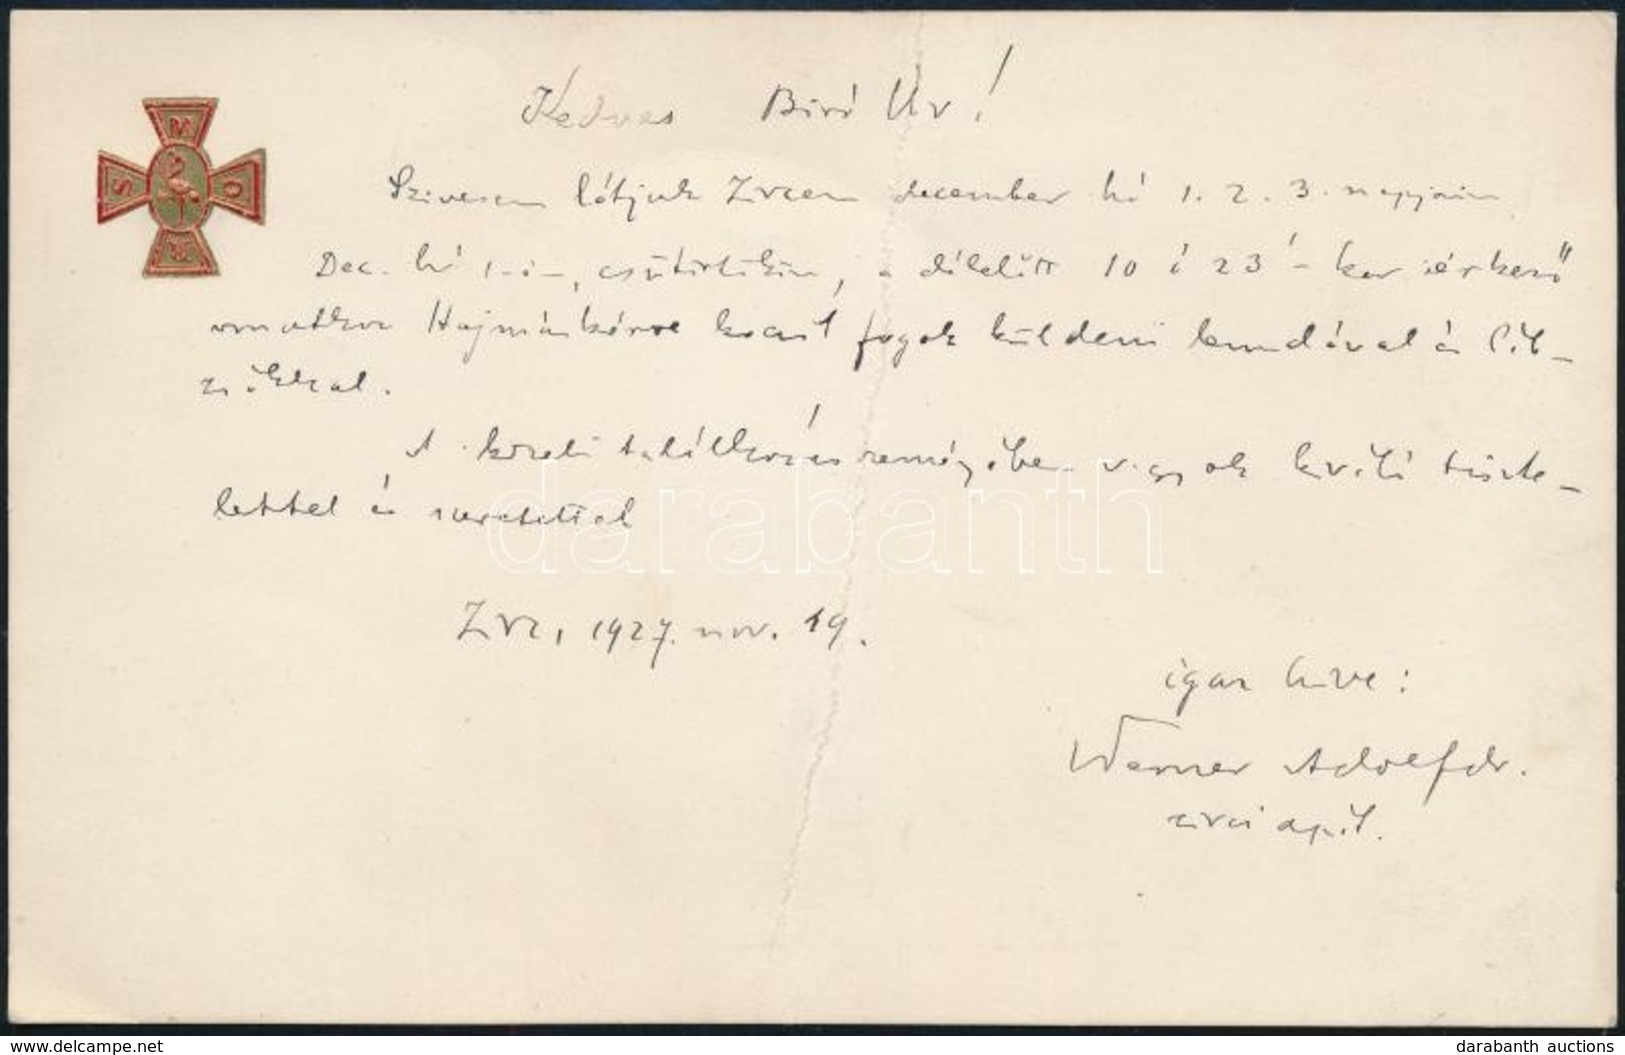 Kedves Biró Úr!
Szivesen látjuk Zircen december hó 1. 2. 3. napjain
Dec. hó 1-én, csütörtökön, a délelőtt 10 ó 23'-kor érkező
vonathoz Hajmáskérre kocsit fogok küldeni bundával és láb-
zsákkal.
A közeli találkozás reményében vagyok kiváló tiszte-
lettel és szeretettel
Zirc, 1927. nov. 19.
igaz hive:
Werner Adolf dr.
zirci apát.
M
S
O
R
darabanth
www.delcampe.net
darabanth auctions